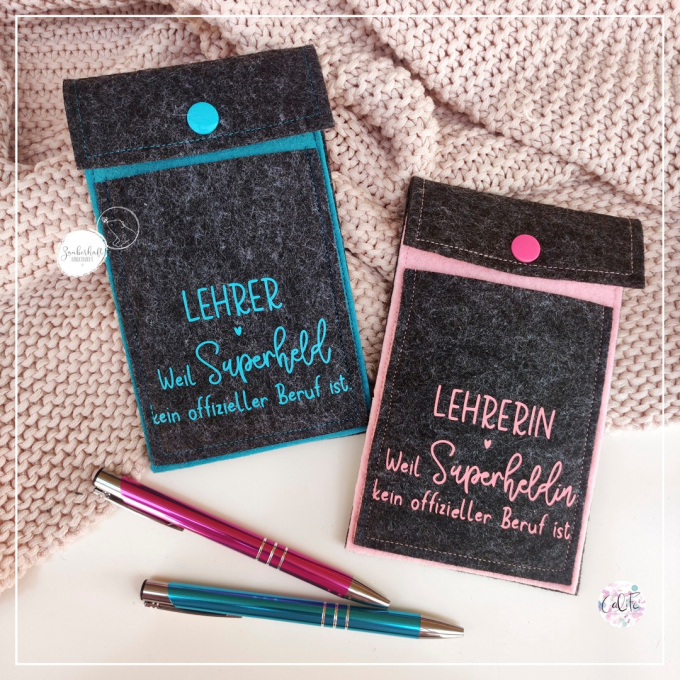 Zauberhaft
LEHRER
Weil Superheld
kein offizieller Beruf ist.
LEHRERIN
Weil Superheldin
kein offizieller Beruf ist.
CaLiFe